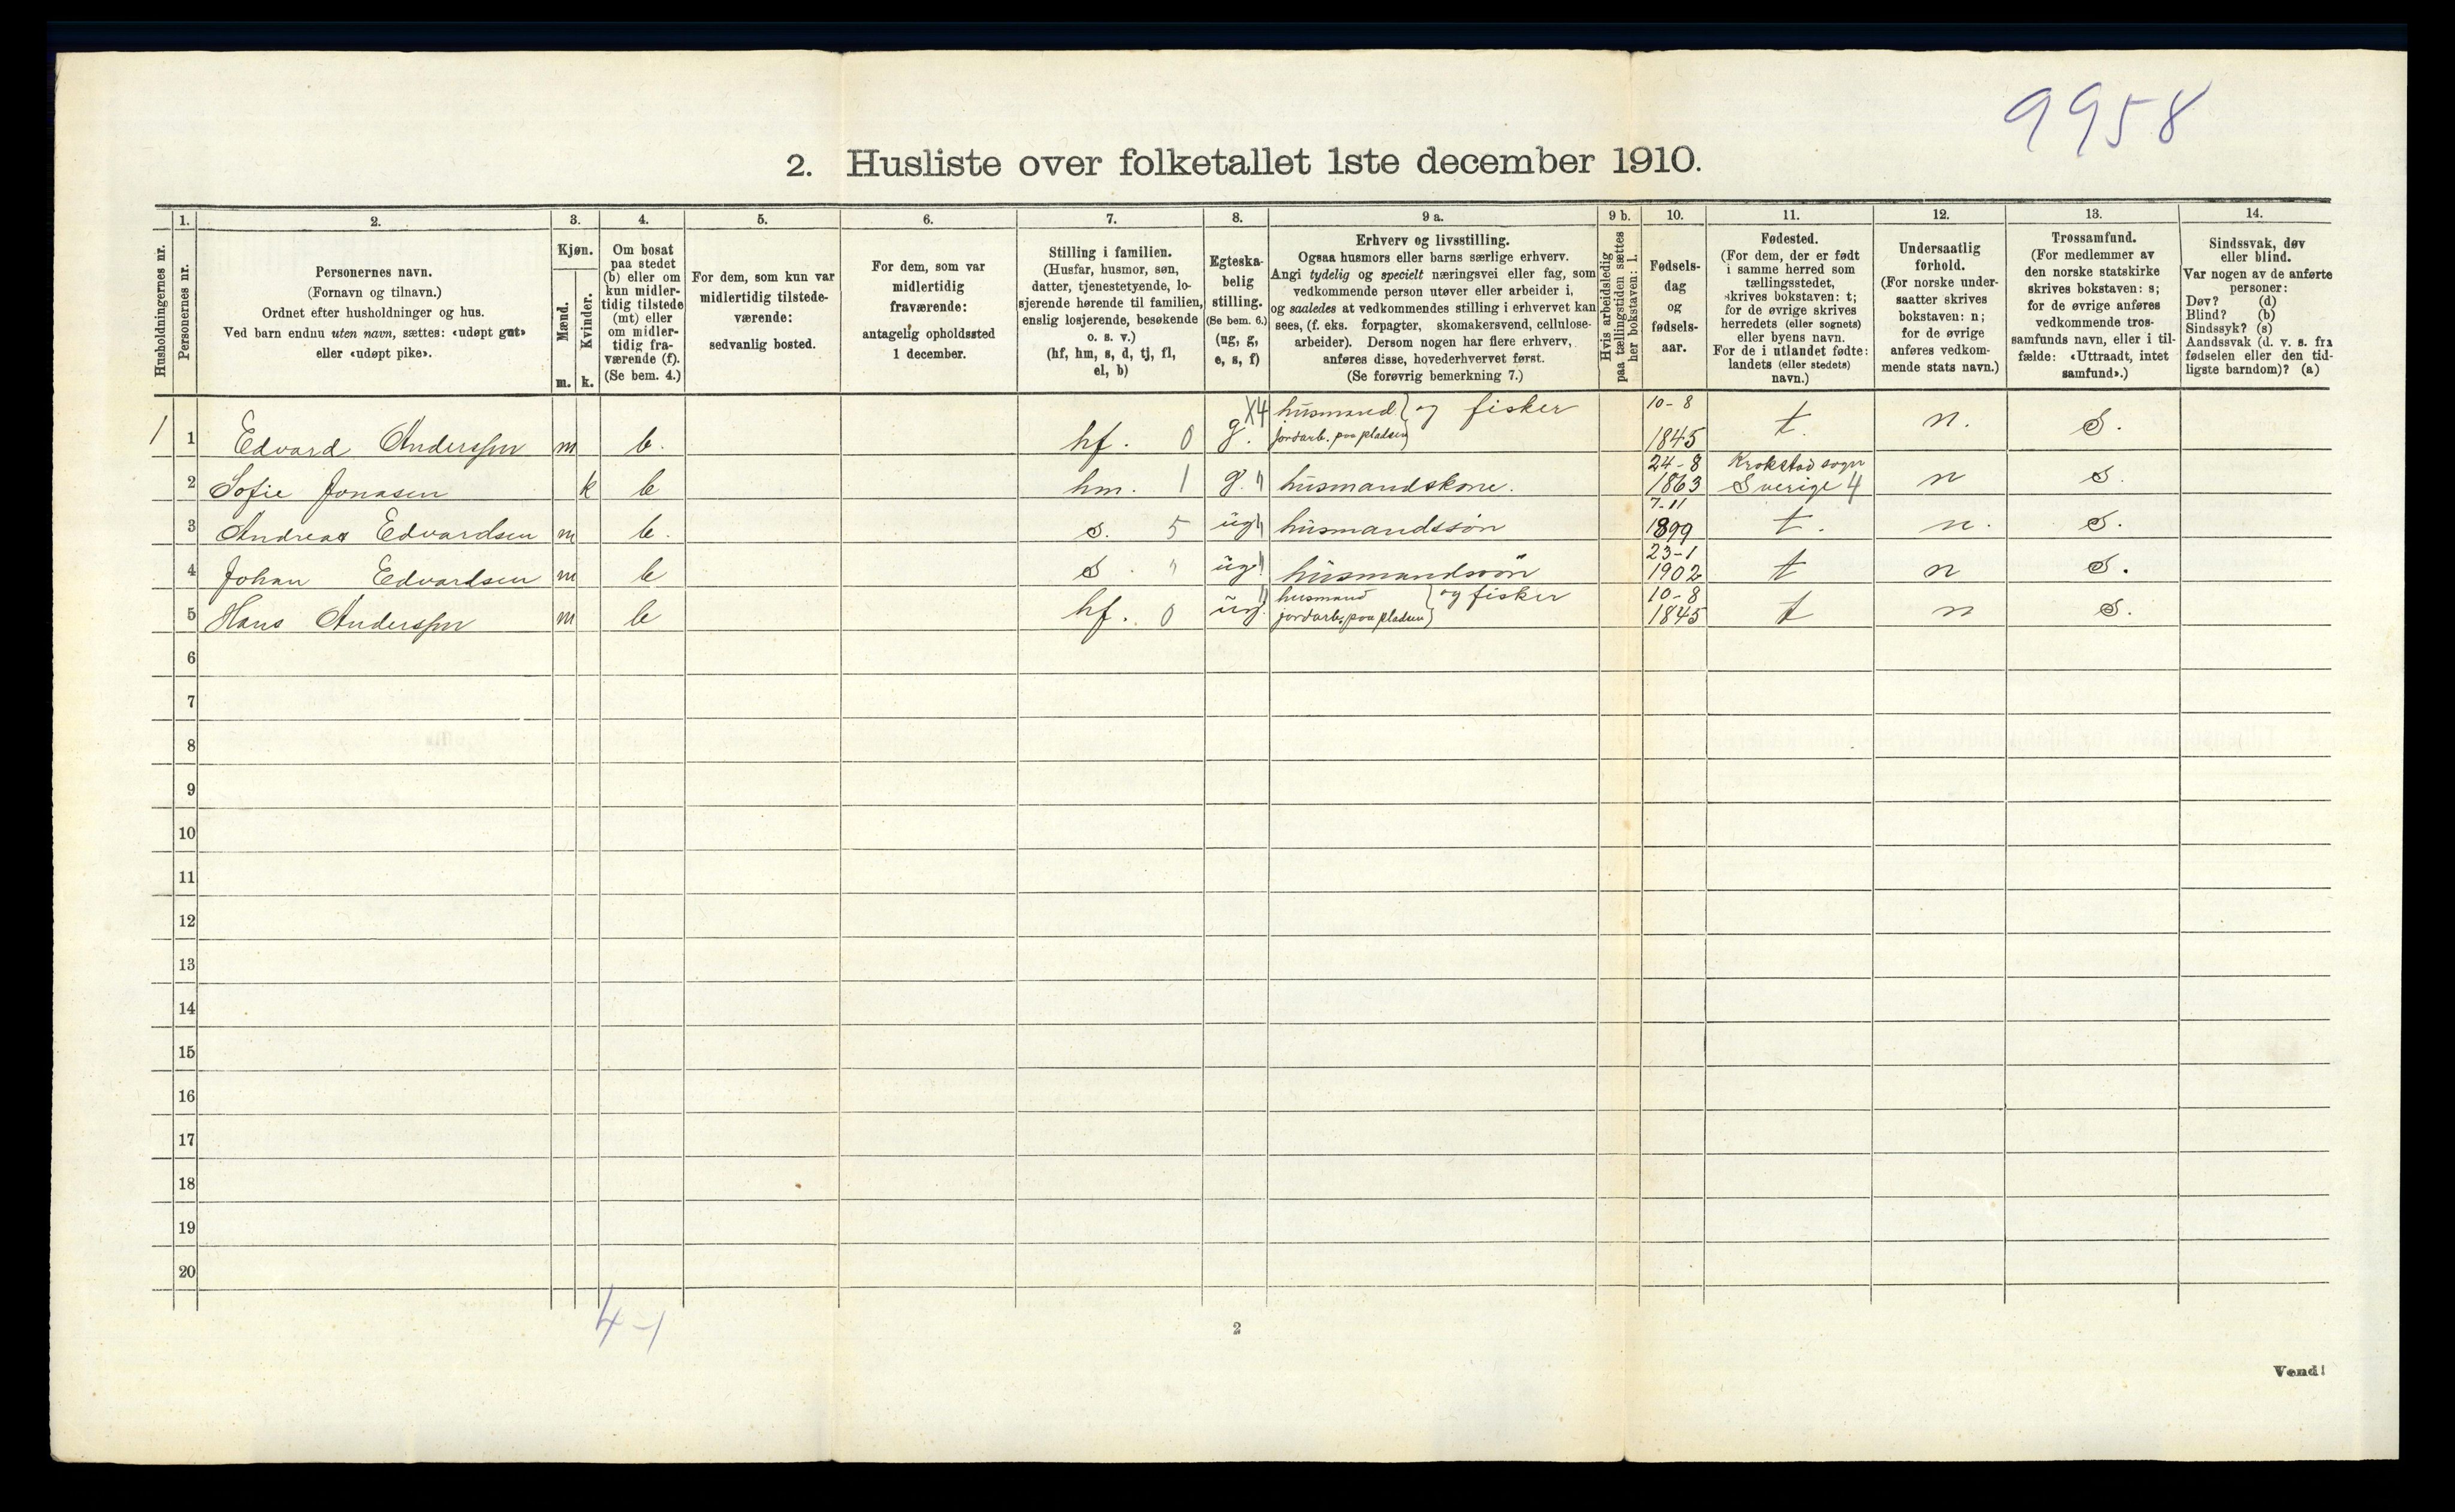 9958
2. Husliste over folketallet 1ste december 1910.
Husholdningernes nr.
1.
Personernes nr.
2.
Personernes navn.
(Fornavn og tilnavn.)
Ordnet efter husholdninger og hus.
Ved barn endnu uten navn, sættes: «udøpt gut»
eller «udøpt pike».
3.
Kjøn.
Mænd.
Kvinder.
m. k.
4.
Om bosat
paa stedet
(b) eller om
kun midler-
tidig tilstede
(mt) eller
om midler-
tidig fra-
værende (f).
(Se bem. 4.)
5.
For dem, som kun var
midlertidig tilstede-
værende:
sedvanlig bosted.
6.
For dem, som var
midlertidig
fraværende:
antagelig opholdssted
1 december.
7.
Stilling i familien.
(Husfar, husmor, søn,
datter, tjenestetyende, lo-
sjerende hørende til familien,
enslig losjerende, besøkende
o. s. v.)
(hf, hm, s, d, tj, fl,
el, b)
8.
Egteska-
belig
stilling.
(Se bem. 6.)
(ug, g,
e, s, f)
9 a.
Erhverv og livsstilling.
Ogsaa husmors eller barns særlige erhverv.
Angi tydelig og specielt næringsvei eller fag, som
vedkommende person utøver eller arbeider i,
og saaledes at vedkommendes stilling i erhvervet kan
sees, (f. eks. forpagter, skomakersvend, cellulose-
arbeider). Dersom nogen har flere erhverv,
anføres disse, hovederhvervet først.
(Se forøvrig bemerkning 7.)
9 b.
Hvis arbeidsledig
paa tællingstiden sættes
her bokstaven: l.
10.
Fødsels-
dag
og
fødsels-
aar.
11.
Fødested.
(For dem, der er født
i samme herred som
tællingsstedet,
skrives bokstaven: t;
for de øvrige skrives
herredets (eller sognets)
eller byens navn.
For de i utlandet fødte:
landets (eller stedets)
navn.)
12.
Undersaatlig
forhold.
(For norske under-
saatter skrives
bokstaven: n;
for de øvrige
anføres vedkom-
mende stats navn.)
13.
Trossamfund.
(For medlemmer av
den norske statskirke
skrives bokstaven: s;
for de øvrige anføres
vedkommende tros-
samfunds navn, eller i til-
fælde: «Uttraadt, intet
samfund».)
14.
Sindssvak, døv
eller blind.
Var nogen av de anførte
personer:
Døv? (d)
Blind? (b)
Sindssyk? (s)
Aandssvak (d. v. s. fra
fødselen eller den tid-
ligste barndom)? (a)
X4 husmand } og fisker 10-8
1 1 Edvard Anderssen m b. hf. 0 g. jordarb. paa pladsen 1845 t. n. S.
24-8 Krokstad sogn
2 Sofie Jonasen k b hm. 1 g. " husmandskone. 1863 Sverige 4 n S.
7-11
3 Andreas Edvardsen m b. s. 5 ug " husmandssön 1899 t. n. S.
23-1
4 Johan Edvardsen m b s. " ug " husmandssön 1902 t n S.
husmand } og fisker 10-8
5 Hans Anderssen m b hf. 0 ug. " jordarb. paa pladsen 1845 t n S.
6
7
8
9
10
11
12
13
14
15
16
17
18
19
20
4-1
2
Vend!